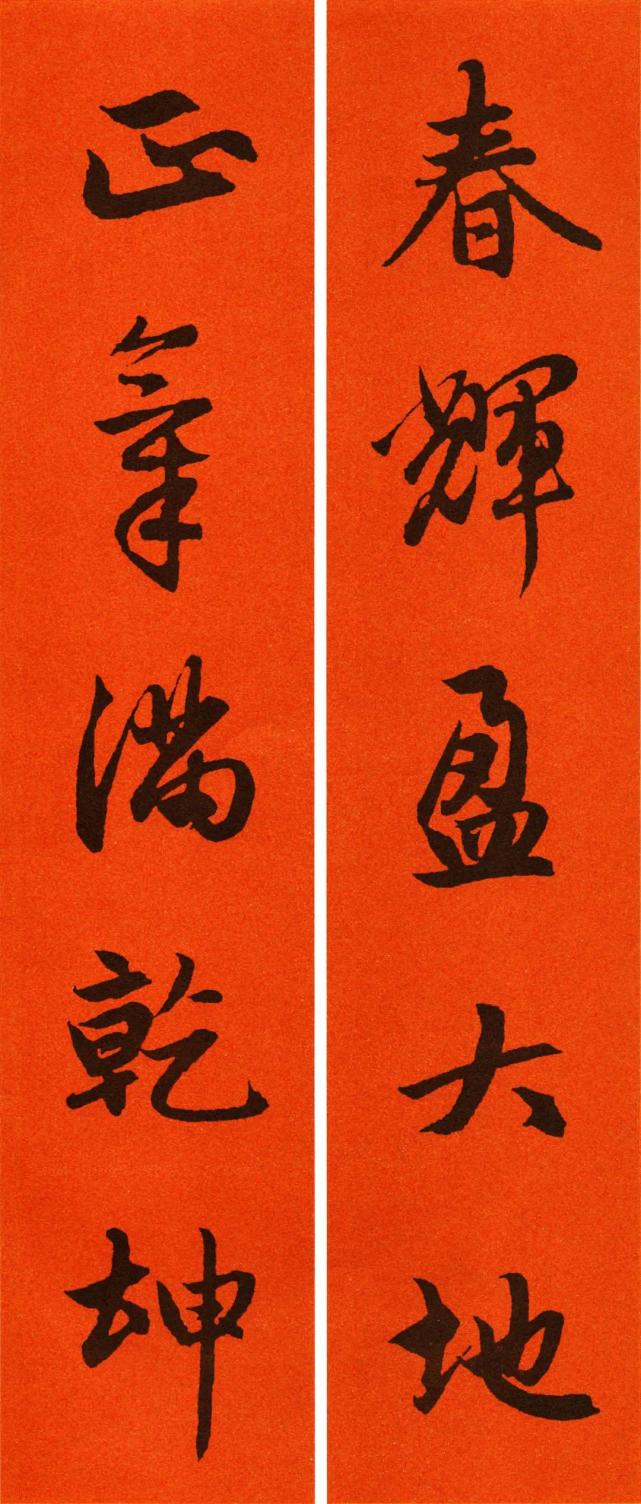 春輝盈大地
正氣滿乾坤